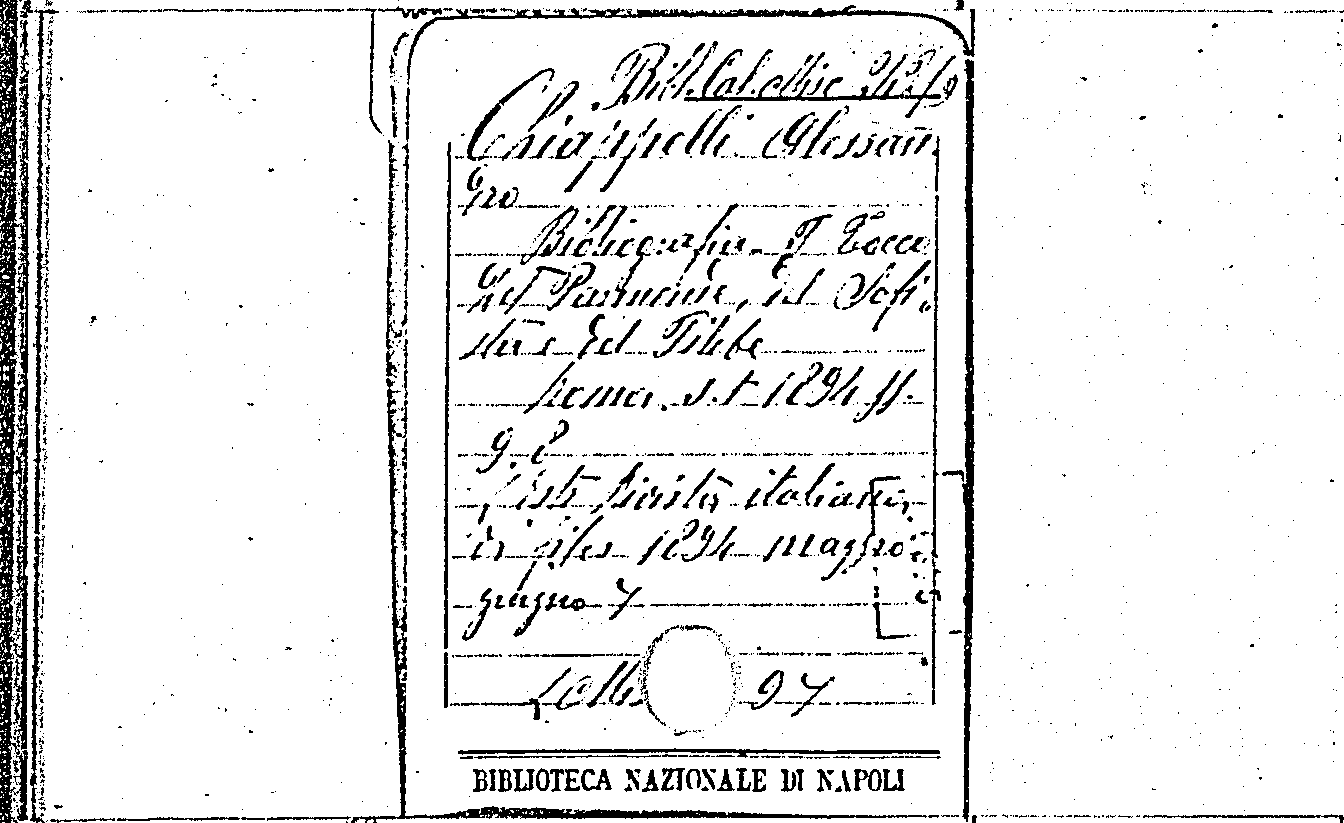 Bibl. Cal. Misc.
Chiappelli Alessan
dro
Bibliografia. F Tocco
del Parmenide, del Sofi
sta e del Filebo
Roma. s. t 1894 ff.
9. 8
Estr Rivista italiana
di filos 1894 maggio
giugno 7
97
BIBLIOTECA NAZIONALE DI NAPOLI